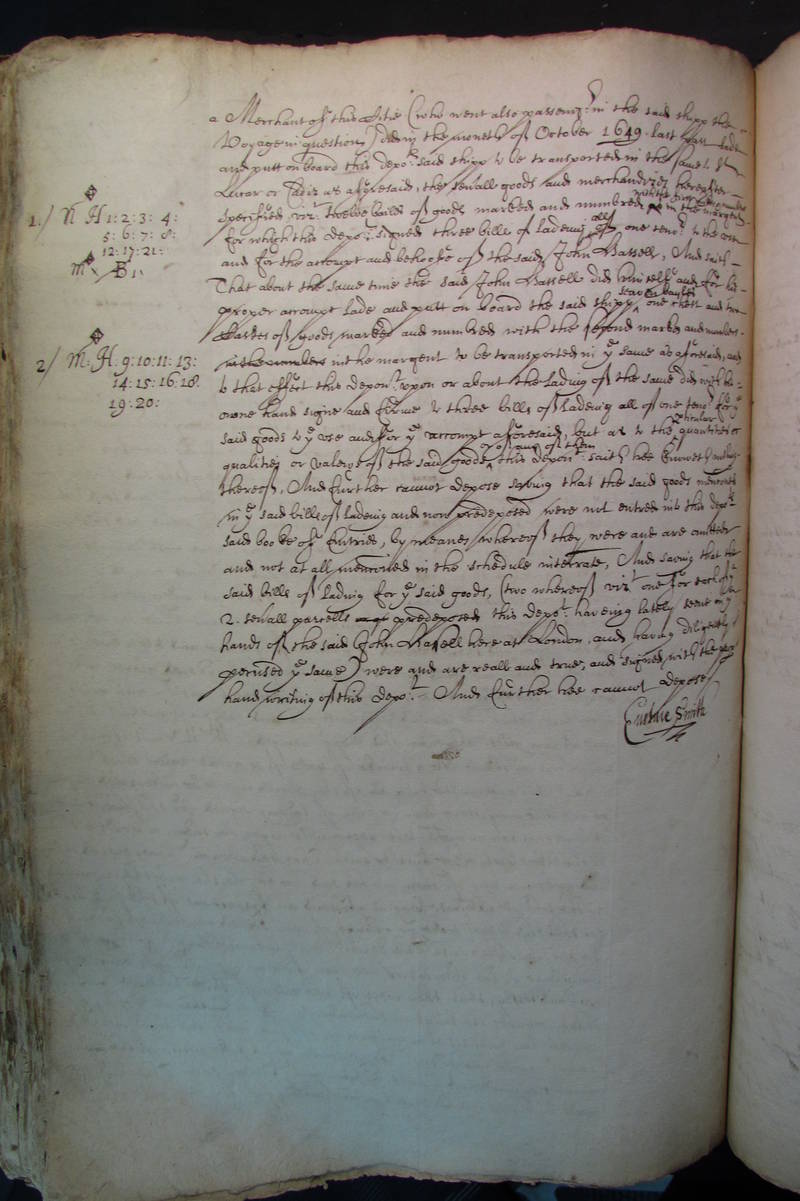 a Merchant of this Citie (who went also passeng:r in the said shipp the
Voyage in question) did in the moneth of October 1649 last past lade
and putt on board this depo:ts said shipp to be transported in the same to S:t
Lucar or Cadiz as aforesaid, the severall goods and merchandizes hereafter
specified viz:t twelve bailes of goods marked and numbred in the margent
with the first numbers
for which this depo:t signed three bills of ladeing all of one teno:r to the use
and for the accompt and behoofe of the said John Bassell, And saith
That about the same time the said John Bassell did himselfe and for his
proper accompt lade and putt on board the said shipp one chest and two
seaven bayles
barkes of goods marked and numbred with the second markes and numbers
in the margent to be transported in y:e same as aforesaid, and
to that effect this depon:t upon or about the lading of the same did with his
owne hand signe and firme to three bills of ladeing all of one teno:r for y:e
said goods to y:e use and for y:e accompt aforesaid, but as to the quantities or
perticular
qualities or valewe of the said goods this depon:t saith hee knoweth nothing
or of any of them
thereof, And further cannot depose saving that the said goods menconed
in y:e said bills of ladeing and now predeposed were not entred into this depo:ts
said booke of Entries, by meanes whereof they were and are omitted
and not at all menconed in the schedule interrate, And saving that the
said bills of lading for y:e said goods, (two whereof viz:t one for each of y:e
2. severall parcells predeposed this depo:t haveing lately seene in y:e
hands of the said John Bassell here at London, and having diligently
perused y:e same) were and are reall and true, and signed with the
hand writing of this depo:t And further hee cannot depose
Smith
1./ N H 1: 2: 3: 4:
5: 6: 7: 8:
12: 17: 21:
B 1
2/ M: H. 9: 10: 11: 13:
14: 15: 16: 18.
19: 20: